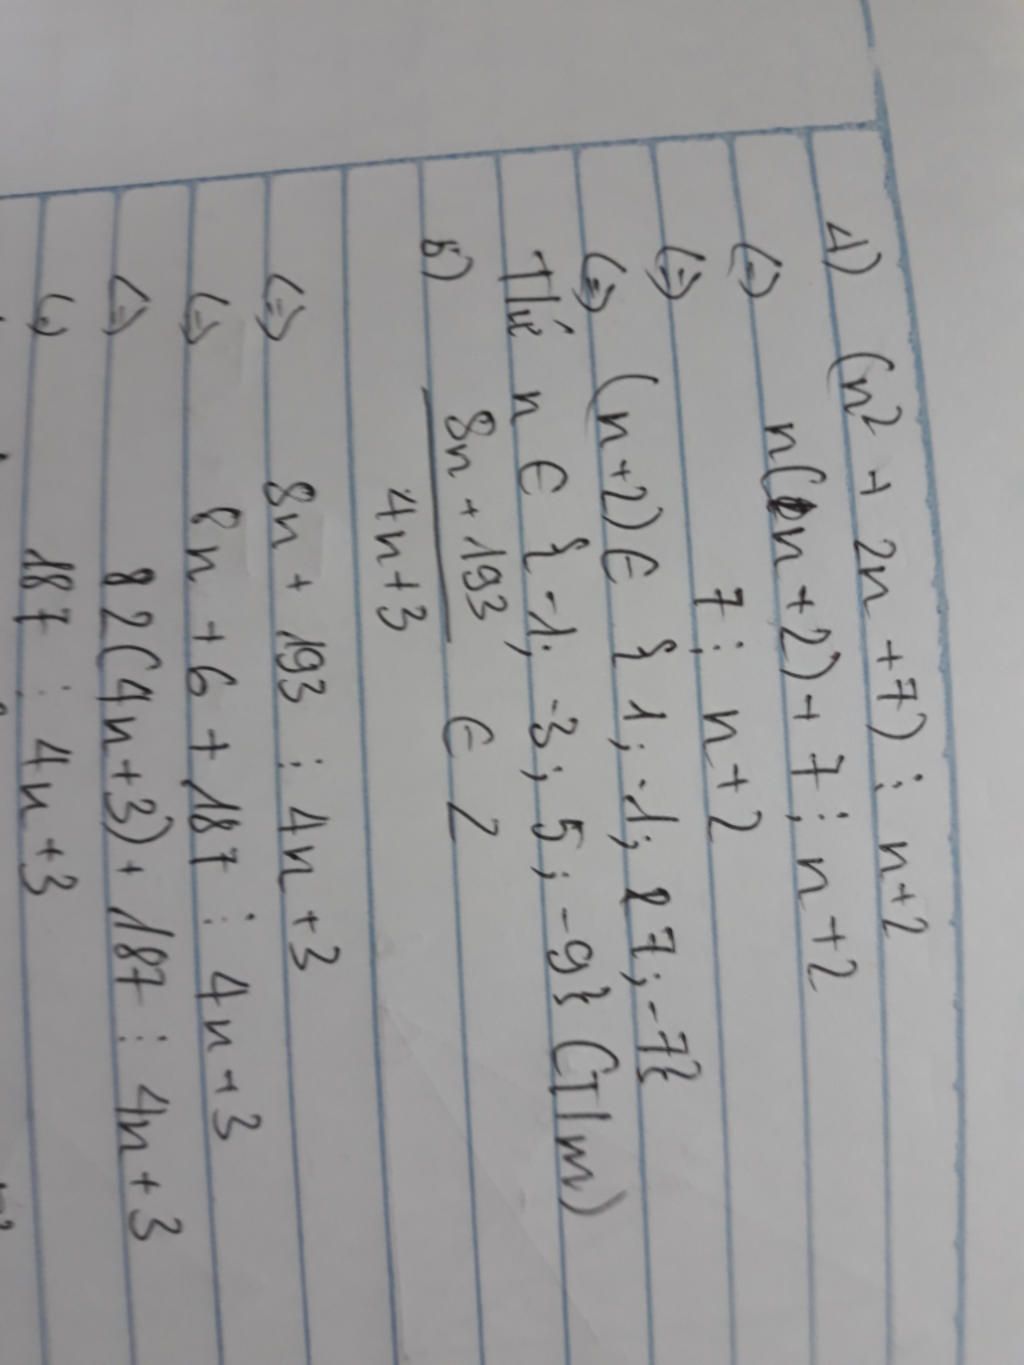 1) (n² + 2n + 7) ⋮ n+2
(=) n(n+2) + 7 ⋮ n+2
(=) 7 ⋮ n+2
(=) (n+2) ∈ { 1; -1; 7; -7}
Thử n ∈ { -1; -3; 5; -9} (T/m)
b) 8n + 193 / 4n+3 ∈ Z
(=) 8n + 193 ⋮ 4n+3
(=) 8n + 6 + 187 ⋮ 4n+3
(=) 2(4n+3) + 187 ⋮ 4n+3
(=) 187 ⋮ 4n+3